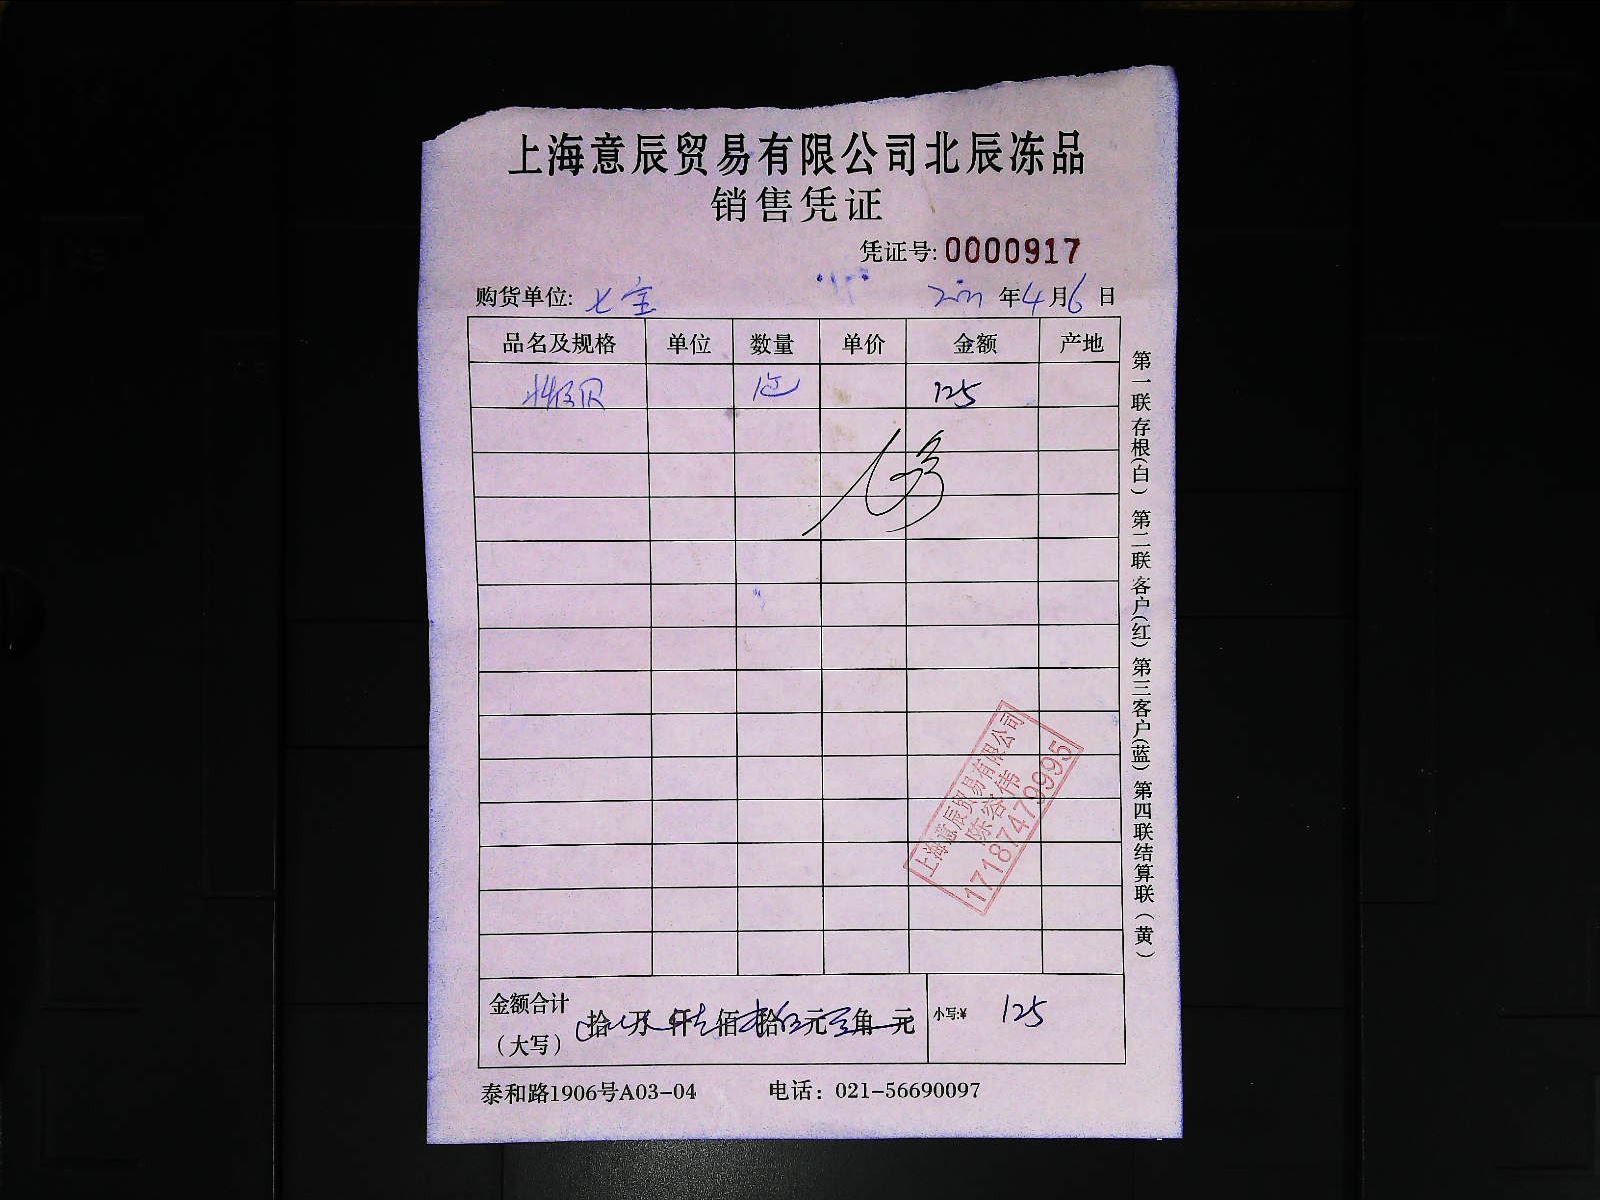 上海意辰贸易有限公司北辰冻品
销售凭证
凭证号: 0000917
购货单位: 七宝 2021年4月6日
品名及规格 单位 数量 单价 金额 产地
125
上海意辰贸易有限公司
陈容伟
17187479995
金额合计
(大写) 拾 万 仟 佰 拾 元 角 元 小写:¥ 125
泰和路1906号A03-04 电话: 021-56690097
第一联存根(白) 第二联客户(红) 第三客户(蓝) 第四联结算联(黄)